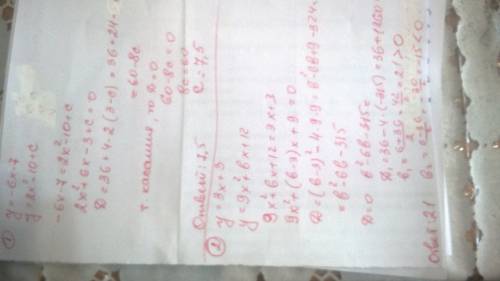 ① y = -6x-7
y = 2x²-10+c
-6x-7 = 2x²-10+c
2x²+6x-3+c=0
D = 36+4·2(3-c) = 36+24-
= 60-8c
т касания, то D=0
60-8c=0
8c=60
c=7,5
Ответ: 7,5
② y=3x+3
y=9x²+bx+12
9x²+bx+12=3x+3
9x²+(b-3)x+9=0
D=(b-3)²-4·9·9=b²-6b+9-324=
=b²-6b-315
D=0 b²-6b-315=
D₁=36-4·(-315)=36+1260
b₁=6+36/2=42/2=21>0
b₂=6-36/2=-30/2=-15<0
Ответ: 21